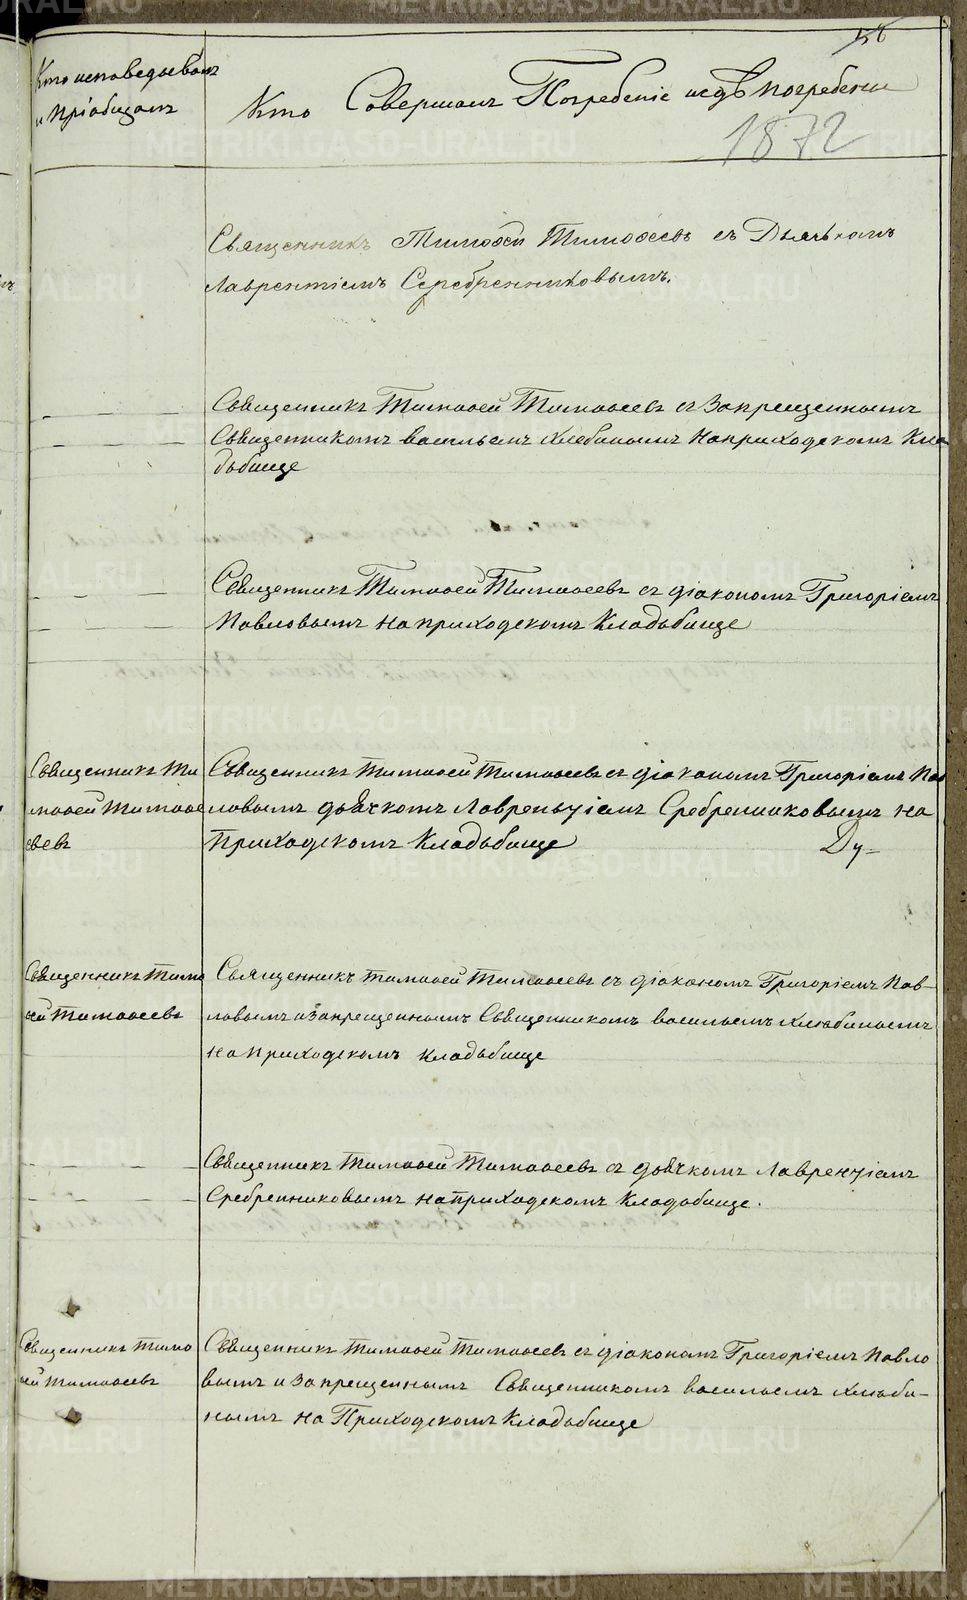 156
Кто исповедывалъ
и пріобщалъ
Кто Совершалъ Погребеніе и гдѣ погребены
1872
Священникъ Тимоѳей Тимоѳеевъ съ Дьячкомъ
Лаврентіемъ Серебренниковымъ.
Священникъ Тимоѳей Тимоѳеевъ съ Запрещеннымъ
Священникомъ васильемъ Хлюбинымъ на приходскомъ Кла
дьбище
Священникъ Тимоѳей Тимоѳеевъ съ діакономъ Григоріемъ
Павловымъ на приходскомъ Кладьбище
Священникъ Ти
моѳей Тимоѳе
евъ
Священникъ Тимоѳей Тимоѳеевъ съ діакономъ Григоріемъ Пав
ловымъ дьячкомъ Лавреньтіемъ Сребренниковымъ на
Приходскомъ Кладьбище
Ду-
Священникъ Тимо
ѳей Тимоѳеевъ
Священникъ Тимоѳей Тимоѳеевъ съ діакономъ Григоріемъ Пав-
ловымъ и Запрещеннымъ Священникомъ васильемъ Хлюбинымъ
на приходскомъ кладьбище
Священникъ Тимоѳей Тимоѳеевъ съ дьячкомъ Лаврентіемъ
Сребренниковымъ на приходскомъ Кладьбище.
Священникъ Тимо
ѳей Тимоѳеевъ
Священникъ Тимоѳей Тимоѳеевъ съ діакономъ Григоріемъ Павло
вымъ и Запрещеннымъ Священникомъ васильемъ Хлюби-
нымъ на Приходскомъ Кладьбище
METRIKI.GASO-URAL.RU